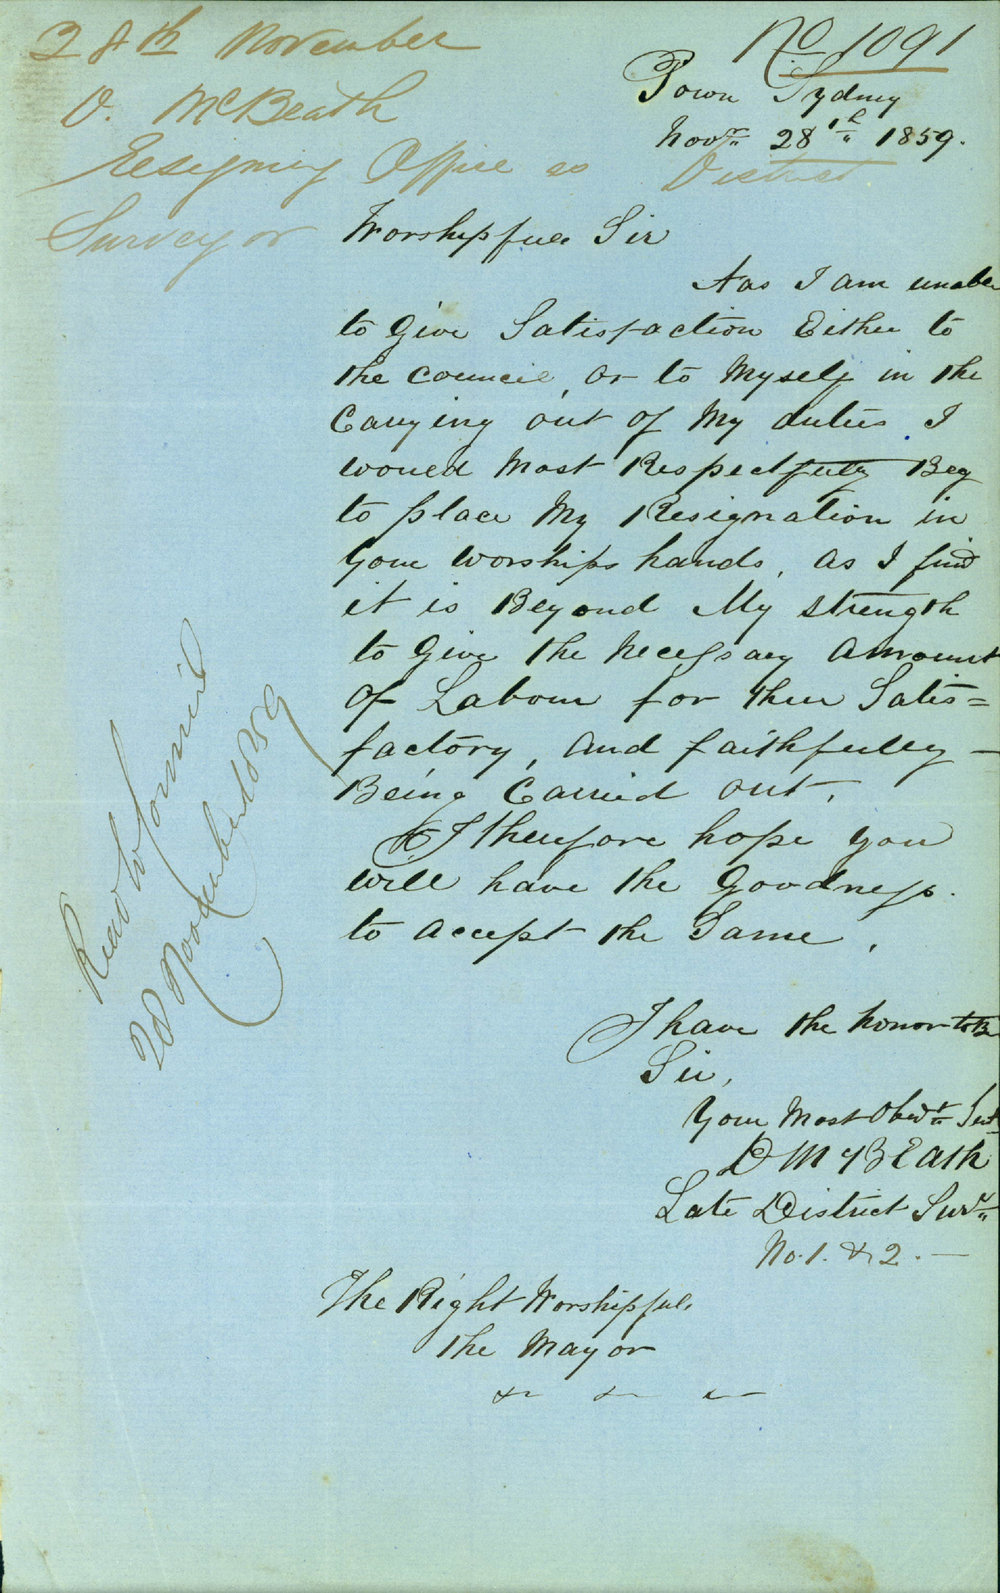 No 1091
28th November
D. McBeath
Resigning Office as District
Surveyor
Town Sydney
Novr 28th 1859.
Worshipfull Sir
Aas I am unable
to Give Satisfaction Either to
the Council, or to Myself in the
Carrying out of My duties I
would Most Respectfully Beg
to place My Resignation in
your Worships hands, as I find
it is Beyond My strength
to Give the Necessary Amount
of Labour for their Satis=
factory, and faithfully -
Being Carried out.
I therefore hope you
will have the Goodness
to accept the Same,
I have the honor to Be
Sir,
Your Most Obedt Servt
D McBEath
Late District Survr
No. 1. & 2. -
The Right Worshipfull
the Mayor
& & &
Read to Council
28 November 1859